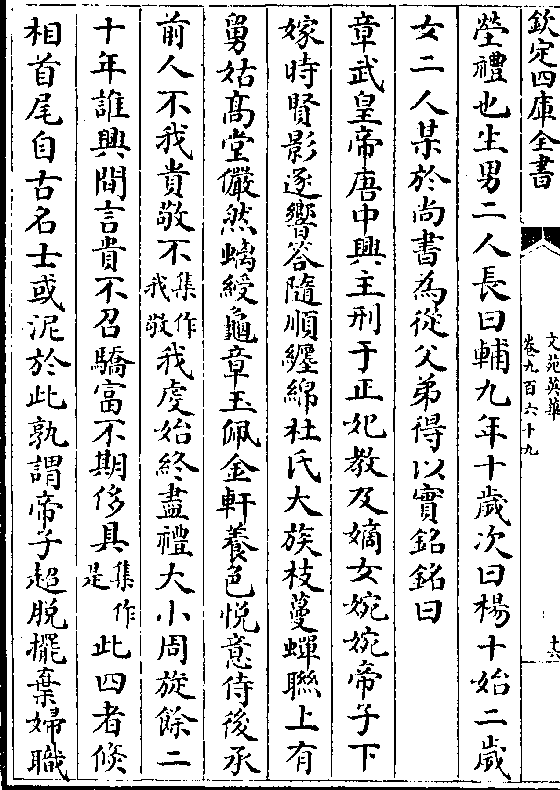 欽定四庫全書
文苑英華
卷九百六十九
十六
塋禮也生男二人長曰輔九年十歲次曰楊十始二歲
女二人某於尚書為從父弟得以實銘銘曰
章武皇帝唐中興主刑于正妃教及嫡女婉婉帝子下
嫁時賢影逐響答隨順纏綿杜氏大族枝蔓蟬聯上有
舅姑高堂儼然螭綬龜章玉佩金軒養色悅意侍後承
前人不我貴敬不集作我敬我虔始終盡禮大小周旋餘二
十年誰興間言貴不召驕富不期侈具集作是此四者倏
相首尾自古名士或泥於此孰謂帝子超脫擺棄婦職